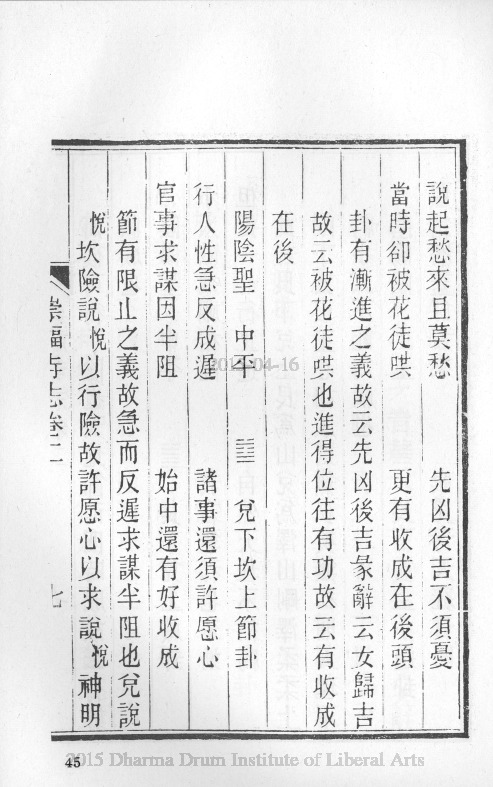 說起愁來且莫愁　先凶後吉不須憂
當時卻被花徒哄　更有收成在後頭
卦有漸進之義故云先凶後吉彖辭云女歸吉
故云被花徒哄也進得位往有功故云有收成
在後
陽陰聖　中平　䷻　兌下坎上節卦
行人性急反成遲　諸事還須許愿心
官事求謀因半阻　始中還有好收成
節有限止之義故急而反遲求謀半阻也兌說
悅坎險說悅以行險故許愿心以求說悅神明
崇福寺志卷二　七
2015-04-16
45
2015 Dharma Drum Institute of Liberal Arts